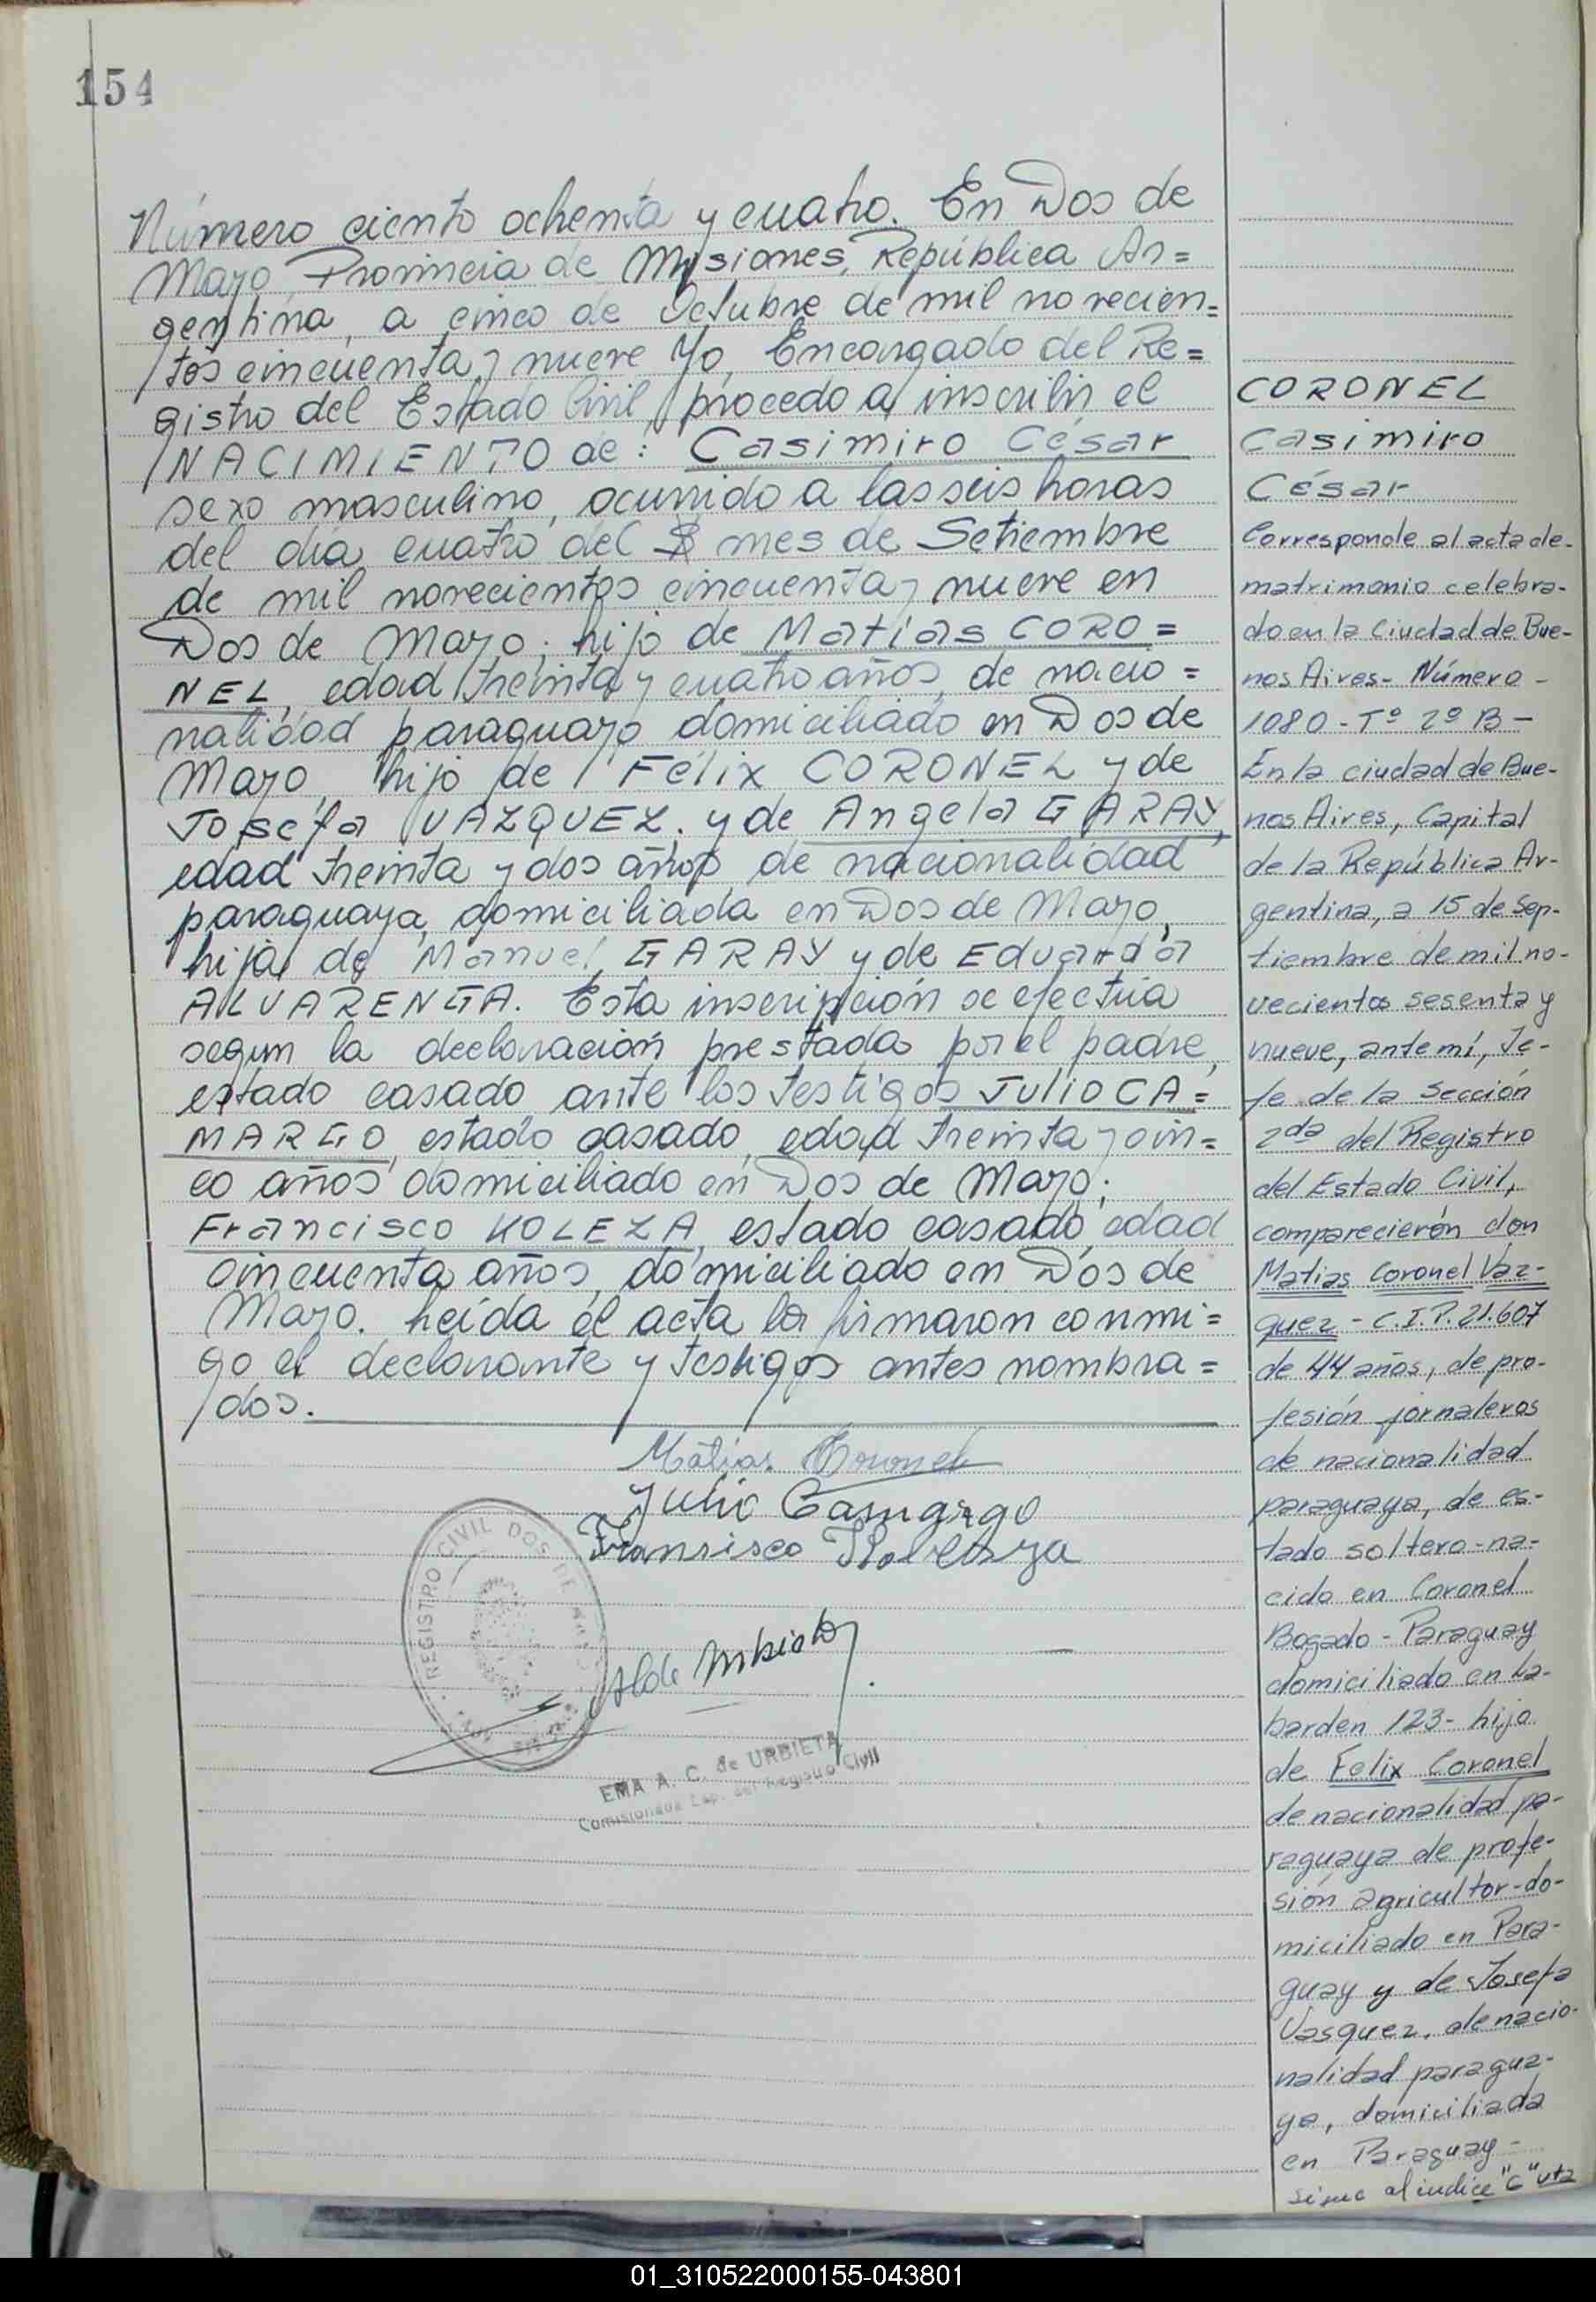 154
Número ciento ochenta y cuatro. En Dos de
Mayo, Provincia de Misiones, República Ar=
gentina, a cinco de Octubre de mil novecien=
tos cincuenta y nueve Yo, Encargado del Re=
gistro del Estado Civil, procedo a inscribir el
NACIMIENTO de: Casimiro César
sexo masculino, ocurrido a las seis horas
del día cuatro del mes de Setiembre
de mil novecientos cincuenta y nueve en
Dos de Mayo; hijo de Matías CORO=
NEL, edad treinta y cuatro años, de nacio=
nalidad paraguayo domiciliado en Dos de
Mayo, hijo de Félix CORONEL y de
Josefa VAZQUEZ. y de Angela GARAY,
edad treinta y dos años de nacionalidad
paraguaya, domiciliada en Dos de Mayo,
hija de Manuel GARAY y de Eduarda
ALVARENGA. Esta inscripción se efectúa
segun la declaración prestada por el padre,
estado casado ante los testigos JULIO CA=
MARGO, estado casado, edad treinta y cin=
co años domiciliado en Dos de Mayo;
Francisco KOLEZA, estado casado, edad
cincuenta años, domiciliado en Dos de
Mayo. Leída el acta la firmaron conmi=
go el declarante y testigos antes nombra=
dos.
Matias Coronel
Julio Camargo
Fransisco
REGISTRO CIVIL DOS DE MAYO
EMA A. C. de URBIETA
Comisionada Esp. del Registro Civil
CORONEL
Casimiro
César
Corresponde al acta de
matrimonio celebra-
do en la Ciudad de Bue-
nos Aires- Número -
1080 - Tº 2º B -
En la ciudad de Bue-
nos Aires, Capital
de la República Ar-
gentina, a 15 de Sep-
tiembre de mil no-
vecientos sesenta y
nueve, ante mí, Je-
fe de la Sección
2da del Registro
del Estado Civil,
comparecierón don
Matias Coronel Vaz-
quez - C.I.P. 21.607
de 44 años, de pro-
fesión jornaleros
de nacionalidad
paraguaya, de es-
tado soltero - na-
cido en Coronel
Bogado - Paraguay
domiciliado en La-
barden 123 - hijo
de Felix Coronel
de nacionalidad pa-
raguaya de profe-
sión agricultor - do-
miciliado en Para-
guay y de Josefa
Vasquez, de nacio-
nalidad paragua-
ya, domiciliada
en Paraguay -
sigue al indice "C"
01_310522000155-043801